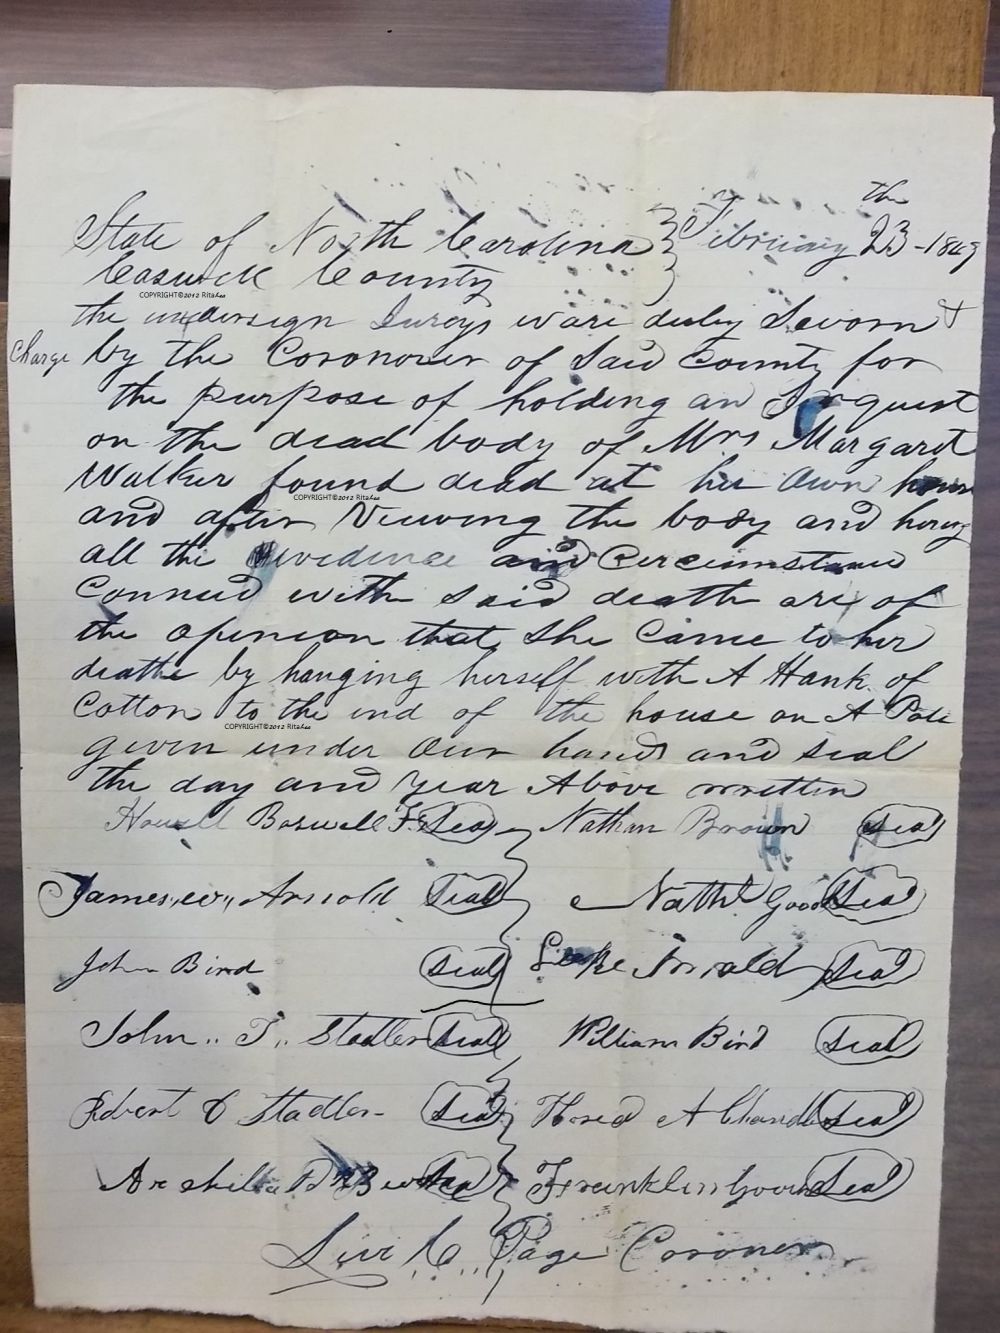 the
State of North Carolina February 23 - 1849
Caswell County
COPYRIGHT©2012 RitaLea
the undersign Jureys ware duley Sworn &
Charge by the Coronover of Said County for
the purpose of holding an Inquest
on the dead body of Mrs Margaret
Walker found dead at her Own
COPYRIGHT©2012 RitaLea
and after Viewing the body and
all the evidence and Circumstance
Conned with Said death are of
the opinion that She Came to her
deathe by hanging herself with A Hank of
Cotton to the end of the house on A Pole
COPYRIGHT©2012 RitaLea
given under Our hand and seal
the day and year Above written
Howell Boswell Seal Nathan Brown Seal
James W. Arnold Seal Nathl Seal
John Bird Seal Arnold Seal
John T. Stadler Seal William Bird Seal
Robert C Stadler Seal A Chandler Seal
Seal Franklin Seal
C. Page Coroner